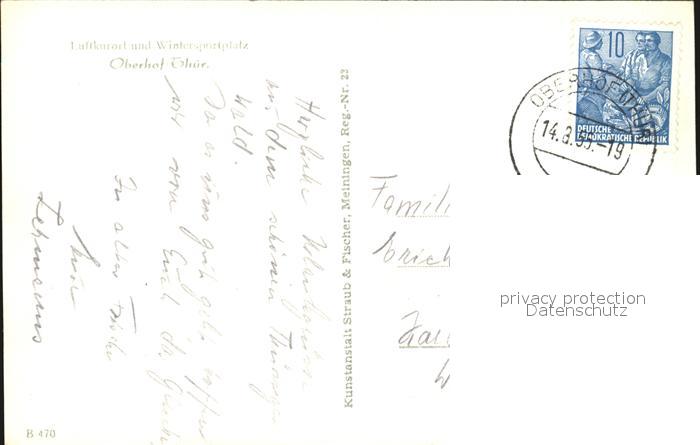 Luftkurort und Wintersportplatz
Oberhof Thür.
Herzliche Urlaubsgrüsse
aus dem schönen Thüringer
Wald.
Da es uns gut geht, hoffen
wir von Euch das Gleiche
In alter Frische
Eure
Lehmanns
B 470
Kunstanstalt Straub & Fischer, Meiningen, Reg.-Nr. 23
10
DEUTSCHE
DEMOKRATISCHE REPUBLIK
OBERHOF (THÜR)
-19
Famili
Erich
privacy protection
Datenschutz